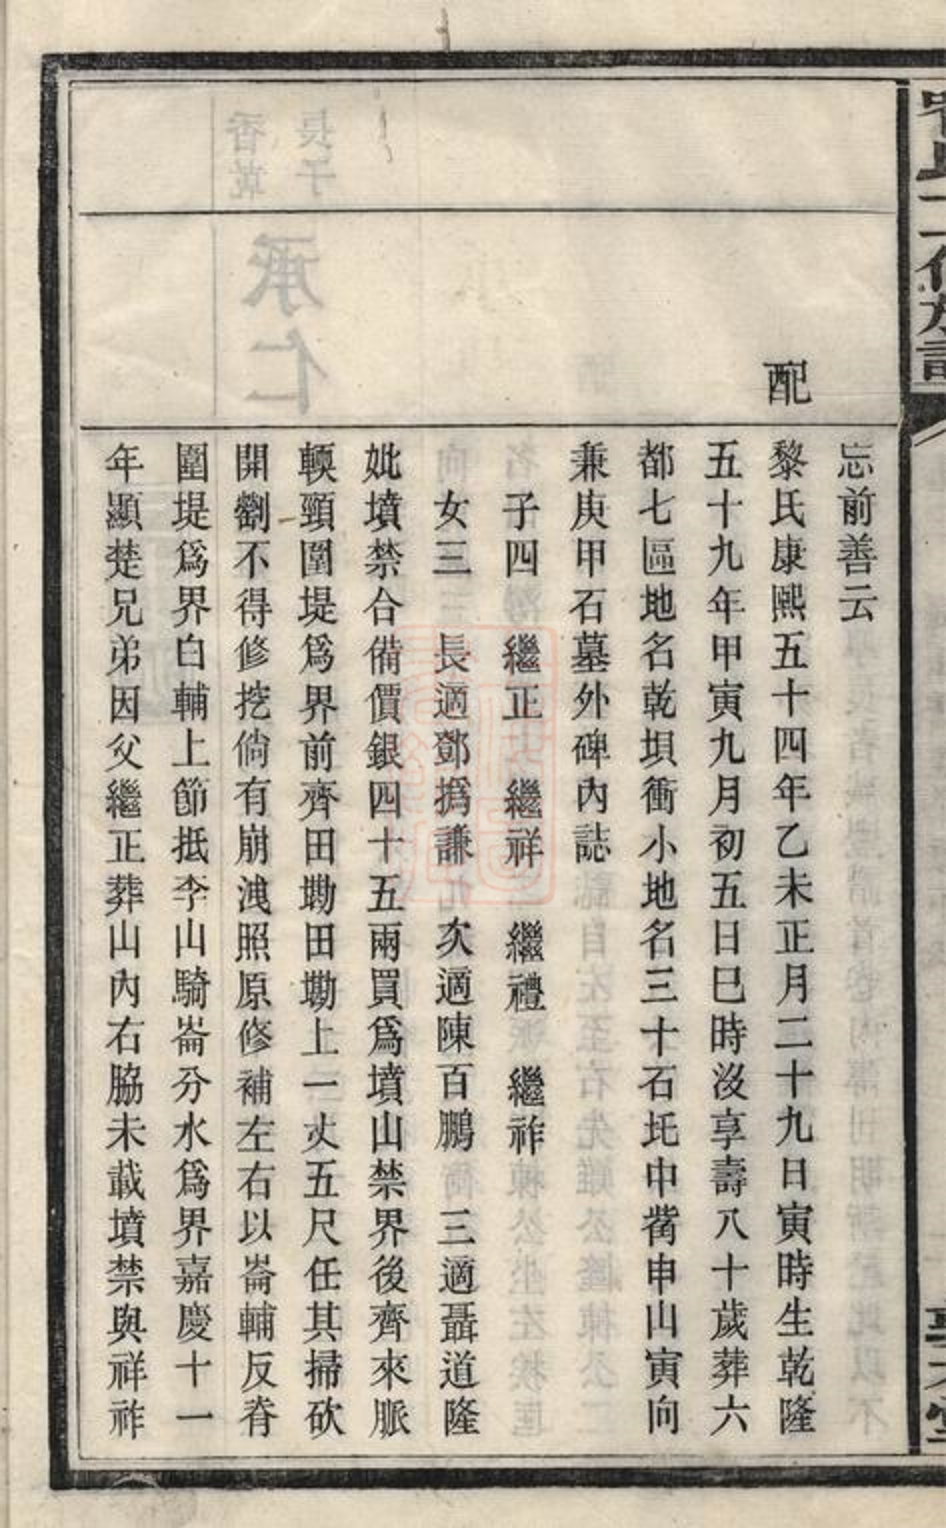 忘前善云
配
黎氏康熙五十四年乙未正月二十九日寅時生乾隆
五十九年甲寅九月初五日巳時沒享壽八十歲葬六
都七區地名乾垻衝小地名三十石坵中嘴申山寅向
兼庚甲石墓外碑內誌
子四 繼正 繼祥 繼禮 繼祚
女三 長適鄧撝謙 次適陳百鵬 三適聶道隆
妣墳禁合備價銀四十五兩買爲墳山禁界後齊來脈
輭頸圍堤爲界前齊田墈田墈上一丈五尺任其掃砍
開劚不得修挖倘有崩洩照原修補左右以崙輔反脊
圍堤爲界白輔上節抵李山騎崙分水爲界嘉慶十一
年顯楚兄弟因父繼正葬山內右脇未載墳禁與祥祚